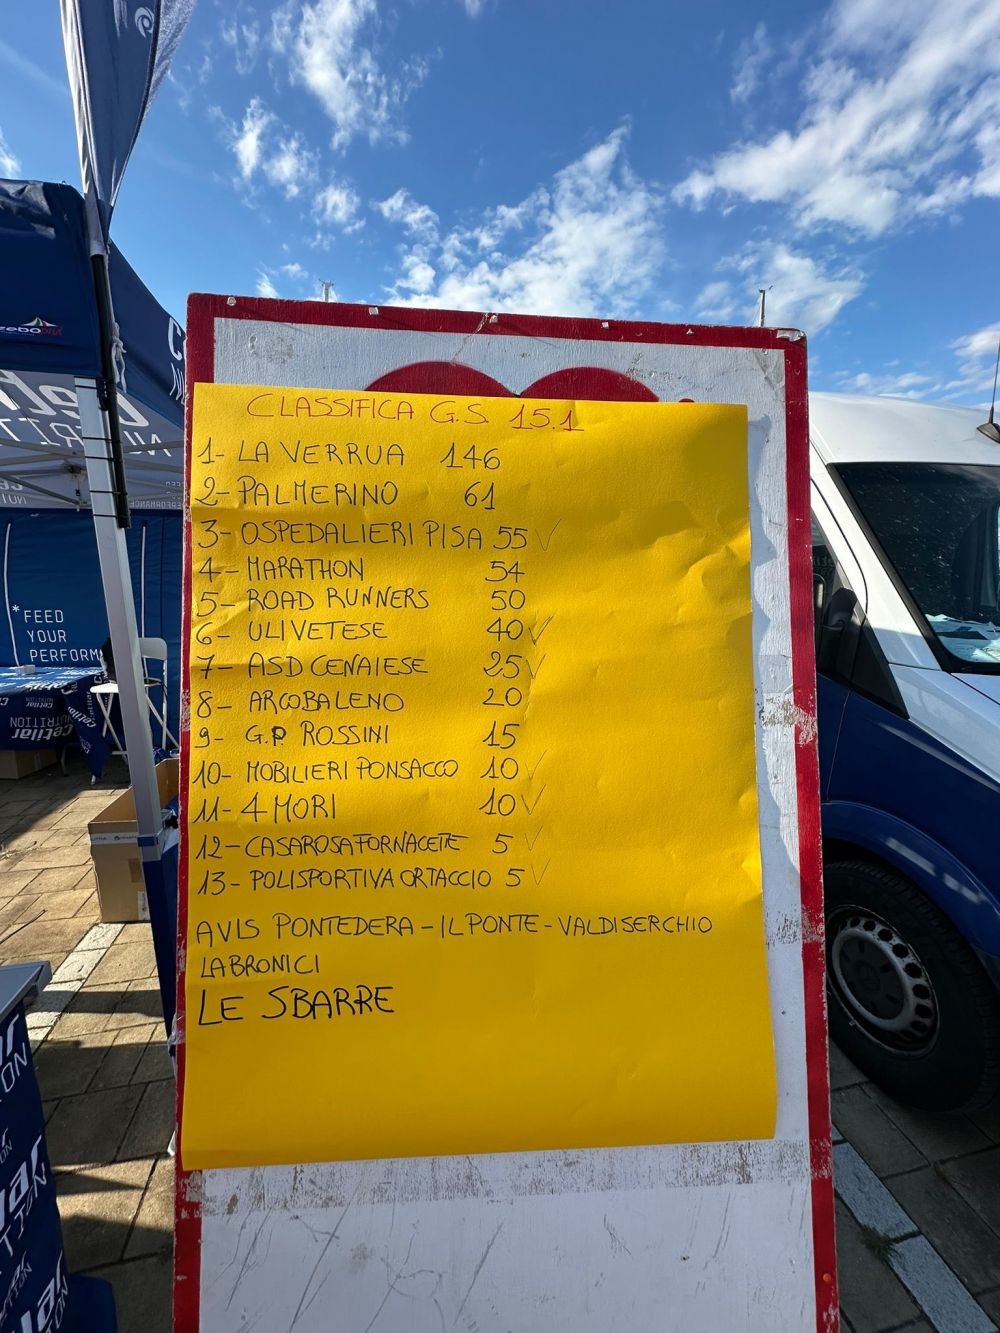 CLASSIFICA G.S. 15.1
1- LA VERRUA 146
2- PALMERINO 61
3- OSPEDALIERI PISA 55 ✓
4- MARATHON 54
5- ROAD RUNNERS 50
6- ULIVETESE 40 ✓
7- ASD CENAIESE 25 ✓
8- ARCOBALENO 20
9- G.P. ROSSINI 15
10- MOBILIERI PONSACCO 10 ✓
11- 4 MORI 10 ✓
12- CASAROSA FORNACETTE 5 ✓
13- POLISPORTIVA ORTACCIO 5 ✓
AVIS PONTEDERA - IL PONTE - VALDISERCHIO
LABRONICI
LE SBARRE
*FEED
YOUR
PERFORM
Cetilar
NUTRITION